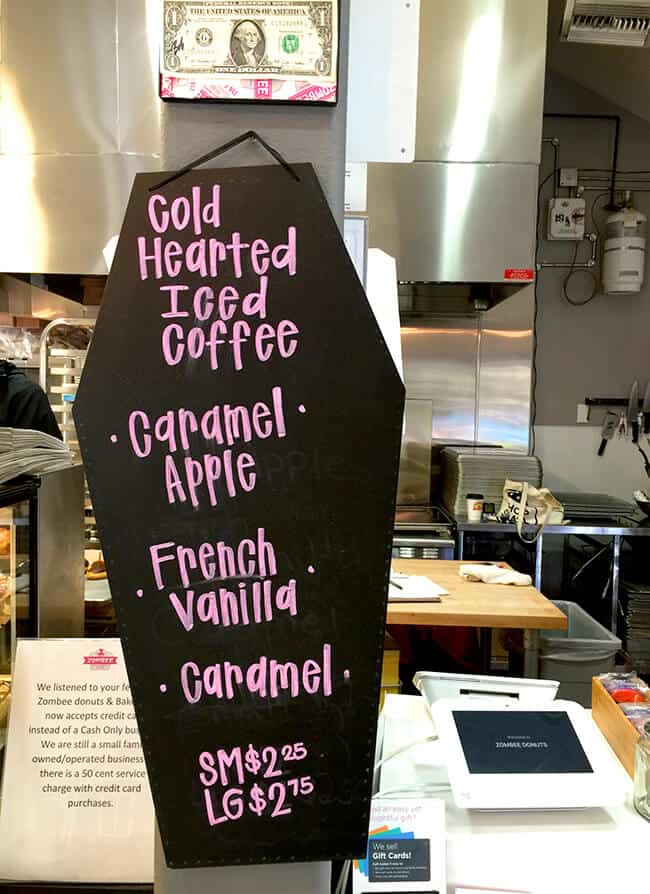 THE UNITED STATES OF AMERICA
ONE DOLLAR
Cold
Hearted
Iced
Coffee
· Caramel ·
Apple
· French ·
Vanilla
· Caramel ·
SM $2.25
LG $2.75
ZOMBEE
We listened to your
Zombee donuts &
now accepts credit
instead of a Cash Only
We are still a small
owned/operated business
there is a 50 cent service
charge with credit card
purchases.
ZOMBEE DONUTS
We sell
Gift Cards!